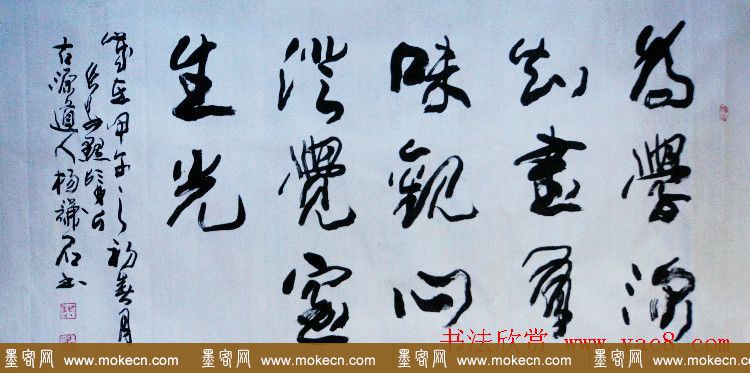 為學深
知書有
味觀心
澄覺室
生光
歲在甲午之初春月
古源道人杨謙石书
书法欣赏 www.yac8.com
墨客网 www.mokecn.com 墨客网 www.mokecn.com 墨客网 www.mokecn.com 墨客网 www.mokecn.com